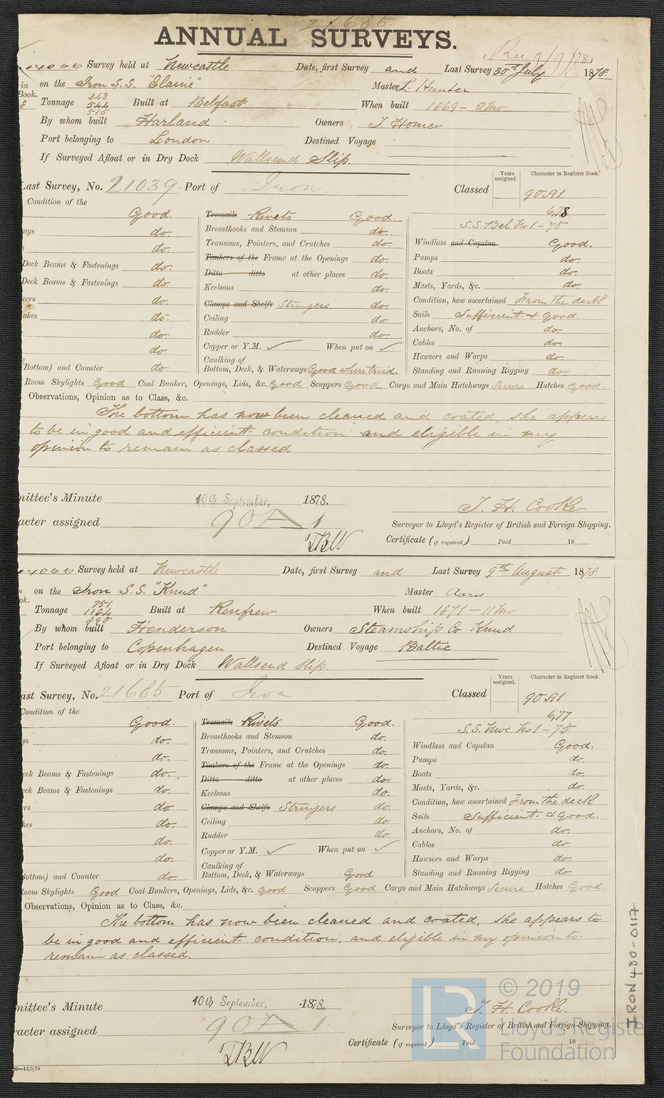 21685
ANNUAL SURVEYS.
Rec 2/9/78
Survey held at Newcastle Date, first Survey and Last Survey 30th July 1878
on the Iron S.S. "Elaine" Master Hunter
Book.
Tonnage 544 Built at Belfast When built 1869 - 8mo
By whom built Harland Owners J. Homer
Port belonging to London Destined Voyage
If Surveyed Afloat or in Dry Dock Wallsend Slip
Last Survey, No. 21039 Port of Iron Classed Years assigned. Character in Register Book.
90A1
6,78
S.S. Bel No1-75
Condition of the
Good. Treenails Rivets Good.
ays do. Breasthooks and Stemson do. Windlass and Capstan Good.
do. Transoms, Pointers, and Crutches do. Pumps do.
Deck Beams & Fastenings do. Timbers of the Frame at the Openings do. Boats do.
Deck Beams & Fastenings do. Ditto ditto at other places do. Masts, Yards, &c. do.
do. Keelsons do. Condition, how ascertained From the deck
do. Clamps and Shelfs Stringers do. Sails Sufficient & good
do. Ceiling do. Anchors, No. of do.
do. Rudder do. Cables do.
do. Copper or Y.M. ✓ When put on ✓ Hawsers and Warps do.
Bottom) and Counter do. Caulking of Bottom, Deck, & Waterways Good where tried Standing and Running Rigging do.
Room Skylights Good Coal Bunker, Openings, Lids, &c. good Scuppers Good Cargo and Main Hatchways Secure Hatches Good
Observations, Opinion as to Class, &c.
The bottom has now been cleaned and coated, she appears
to be in good and efficient condition and eligible in my
opinion to remain as classed
mittee's Minute 10th September, 1878.
J. H. Cooke
acter assigned 90A1
Surveyor to Lloyd's Register of British and Foreign Shipping.
TBW
Certificate (if required) Paid 18
Survey held at Newcastle Date, first Survey and Last Survey 9th August 1878
on the Iron S.S. "Knud" Master Aaris
Tonnage 751 Built at Renfrew When built 1871 - 11mo
By whom built Henderson Owners Steamship Co. Knud
Port belonging to Copenhagen Destined Voyage Baltic
If Surveyed Afloat or in Dry Dock Wallsend Slip
ast Survey, No. 21685 Port of Iron Classed Years assigned. Character in Register Book.
90A1
6,77
S.S. Nwc No1-75
Condition of the
Good. Treenails Rivets Good.
ys do. Breasthooks and Stemson do. Windlass and Capstan Good.
do. Transoms, Pointers, and Crutches do. Pumps do.
eck Beams & Fastenings do. Timbers of the Frame at the Openings do. Boats do.
eck Beams & Fastenings do. Ditto ditto at other places do. Masts, Yards, &c. do.
rs do. Keelsons do. Condition, how ascertained From the deck
kes do. Clamps and Shelfs Stringers do. Sails Sufficient & Good
do. Ceiling do. Anchors, No. of do.
do. Rudder do. Cables do.
Copper or Y.M. ✓ When put on ✓ Hawsers and Warps do.
ottom) and Counter do. Caulking of Bottom, Deck, & Waterways Good Standing and Running Rigging do.
oom Skylights Good Coal Bunkers, Openings, Lids, &c. good Scuppers Good Cargo and Main Hatchways Secure Hatches Good.
Observations, Opinion as to Class, &c.
The bottom has now been cleaned and coated, she appears to
be in good and efficient condition, and eligible in my opinion to
remain as classed.
mittee's Minute 10th September, 1878.
J. H. Cooke.
racter assigned 90A1
Surveyor to Lloyd's Register of British and Foreign Shipping.
TBW
Certificate (if required) Paid 18
IRON 480-0117
LR
© 2019
Lloyd's Register
Foundation